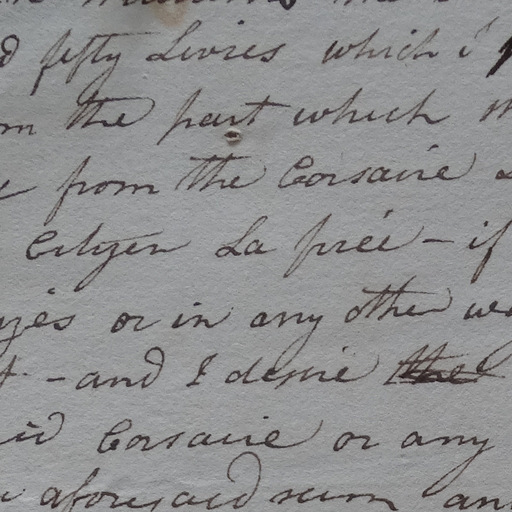 fifty Livres which I
the part which
from the Corsaire
Citizen La fréé - if
or in any other
- and I desire the
Corsaire or any
aforesaid sum